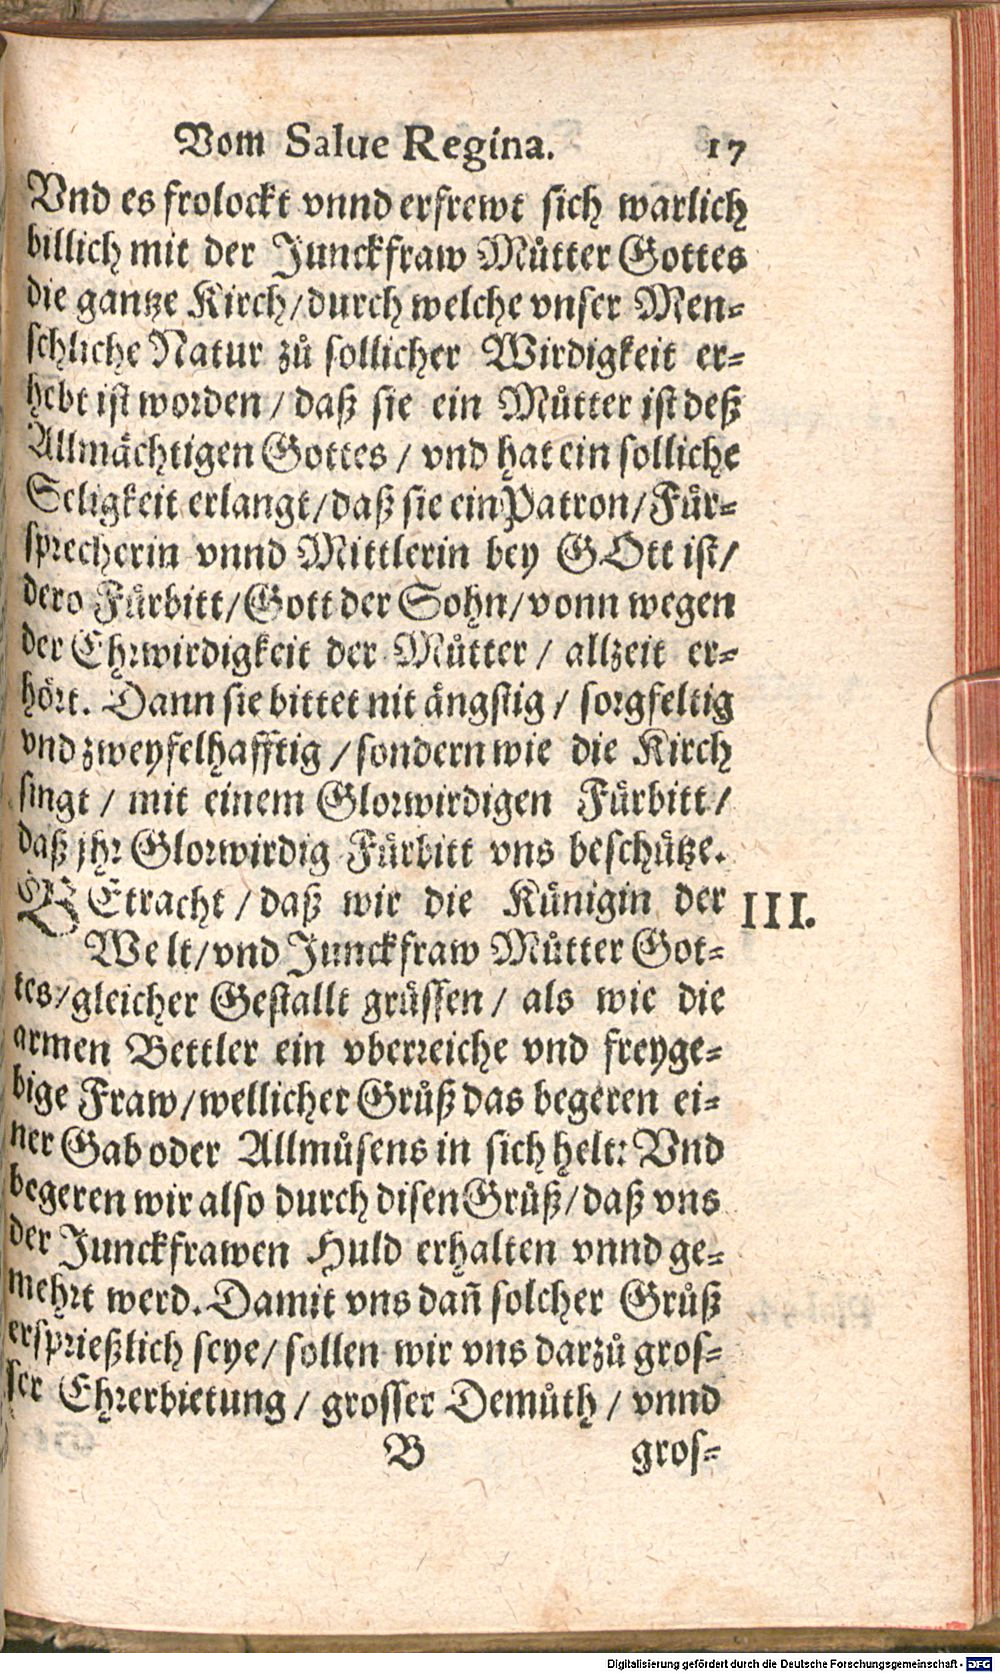 Vom Salue Regina. 17
Vnd es frolockt vnnd erfrewt sich warlich
billich mit der Junckfraw Můtter Gottes
die gantze Kirch/durch welche vnser Men-
schliche Natur zů sollicher Wirdigkeit er-
hebt ist worden / daß sie ein Můtter ist deß
Allmächtigen Gottes / vnd hat ein solliche
Seligkeit erlangt/daß sie ein Patron/Für-
sprecherin vnnd Mittlerin bey GOtt ist/
dero Fürbitt/Gott der Sohn/vonn wegen
der Ehrwirdigkeit der Můtter / allzeit er-
hört. Dann sie bittet nit ängstig / sorgfeltig
vnd zweyfelhafftig / sondern wie die Kirch
singt / mit einem Glorwirdigen Fürbitt/
daß jhr Glorwirdig Fürbitt vns beschütze.
BEtracht / daß wir die Künigin der III.
Welt/vnd Junckfraw Můtter Got-
tes/gleicher Gestallt grüssen / als wie die
armen Bettler ein vberreiche vnd freyge-
bige Fraw/wellicher Grůß das begeren ei-
ner Gab oder Allmůsens in sich helt: Vnd
begeren wir also durch disen Grůß/daß vns
der Junckfrawen Huld erhalten vnnd ge-
mehrt werd. Damit vns dañ solcher Grůß
ersprießlich seye/ sollen wir vns darzů gros-
ser Ehrerbietung / grosser Demůth / vnnd
B gros-
Digitalisierung gefördert durch die Deutsche Forschungsgemeinschaft - DFG